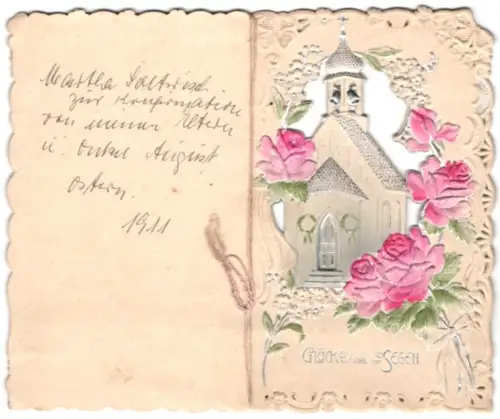 Martha
zur Konfirmation
von meinen Eltern
u. Onkel August
Ostern.
1911
Glück und Segen